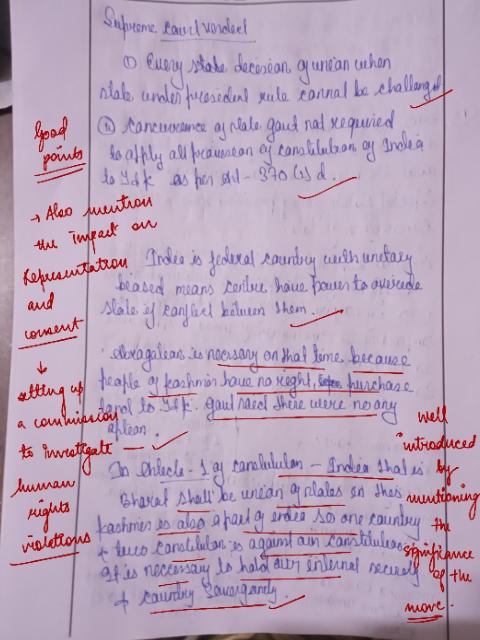 Supreme court verdect
(i) Every state decesean of unean when
state under presedent rule cannot be challenged
(ii) Cancurrence of state gout not required
to apply all provesean of canstetutean of Indea
to J&k as per Art - 370 (1) d.
Good
points
→ Also mention
the impact on
Representation
and
consent
↓
setting up
a commission
to investigate
human
rights
violations
Indea is federal country weth unetary
beased means centre have power to overide
state if canflect between them.
abragatean is necssary on that time because
people of kashmir have no reght, purchase
land to J&k. gout need there were no any
In Artecle - 1 of canstetutean - Indea that is
Bharat shall be unean of states en thes
kashmer is also a part of endea so one country
+ two canstetutean is against our canstetutean
It is necessary to hold our internal security
+ country Soverganty.
well
introduced
by
mentioning
the
significance
of the
move.